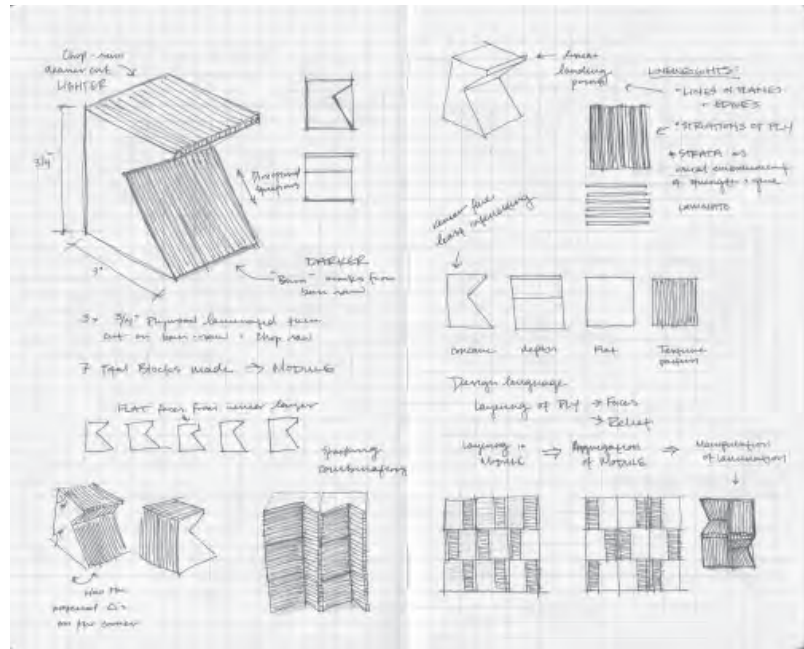 Chop-saw
cleaner cut
LIGHTER
3/4"
3"
Directional
DARKER
"Burn" marks from
3x 3/4" Plywood laminated then
cut on band-saw + Chop saw
7 Total Blocks made → MODULE
FLAT faces from veneer larger
Stacking
combinations
on the corner
linear
landing
LINEWEIGHTS:
- LINES OF PLANES
+ EDGES
* STRIATIONS OF PLY
* STRATA as
visual
of strength + glue
LAMINATE
veneer face
least interesting
concave
depth
Flat
Texture
pattern
Design language
Layering of PLY → Faces
→ Relief
Layering in
MODULE
⇒ Aggregation
of MODULE
⇒ Manipulation
of lamination